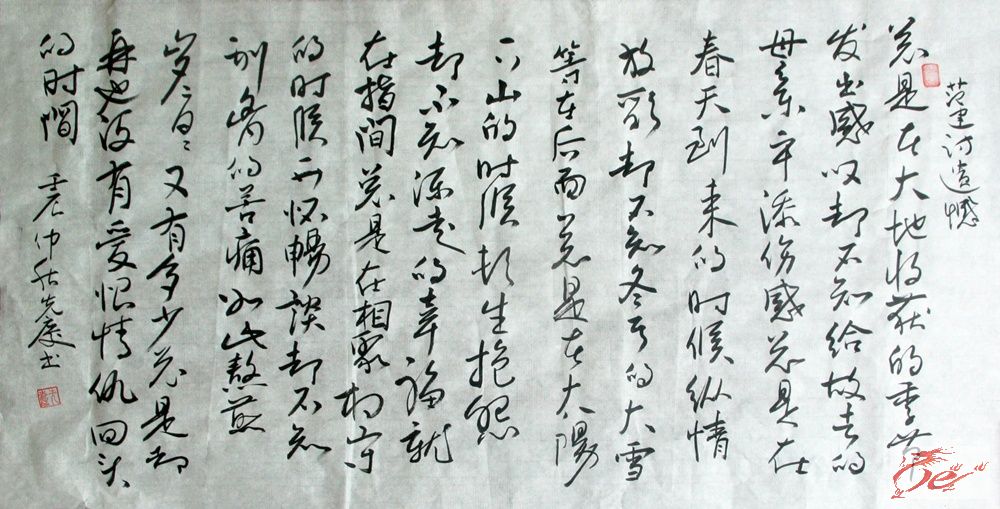 范建诗遗憾
总是在大地收获的季节
发出感叹却不知给故去的
母亲平添伤感总是在
春天到来的时候纵情
放歌却不知冬天的大雪
等在后面总是在太阳
下山的时候顿生抱怨
却不知流走的幸福就
在指间总是在相聚相守
的时候开怀畅谈却不知
别离的苦痛如此熬煎
岁岁日日又有多少总是却
再也没有爱恨情仇回头
的时间
壬辰仲秋先庆书